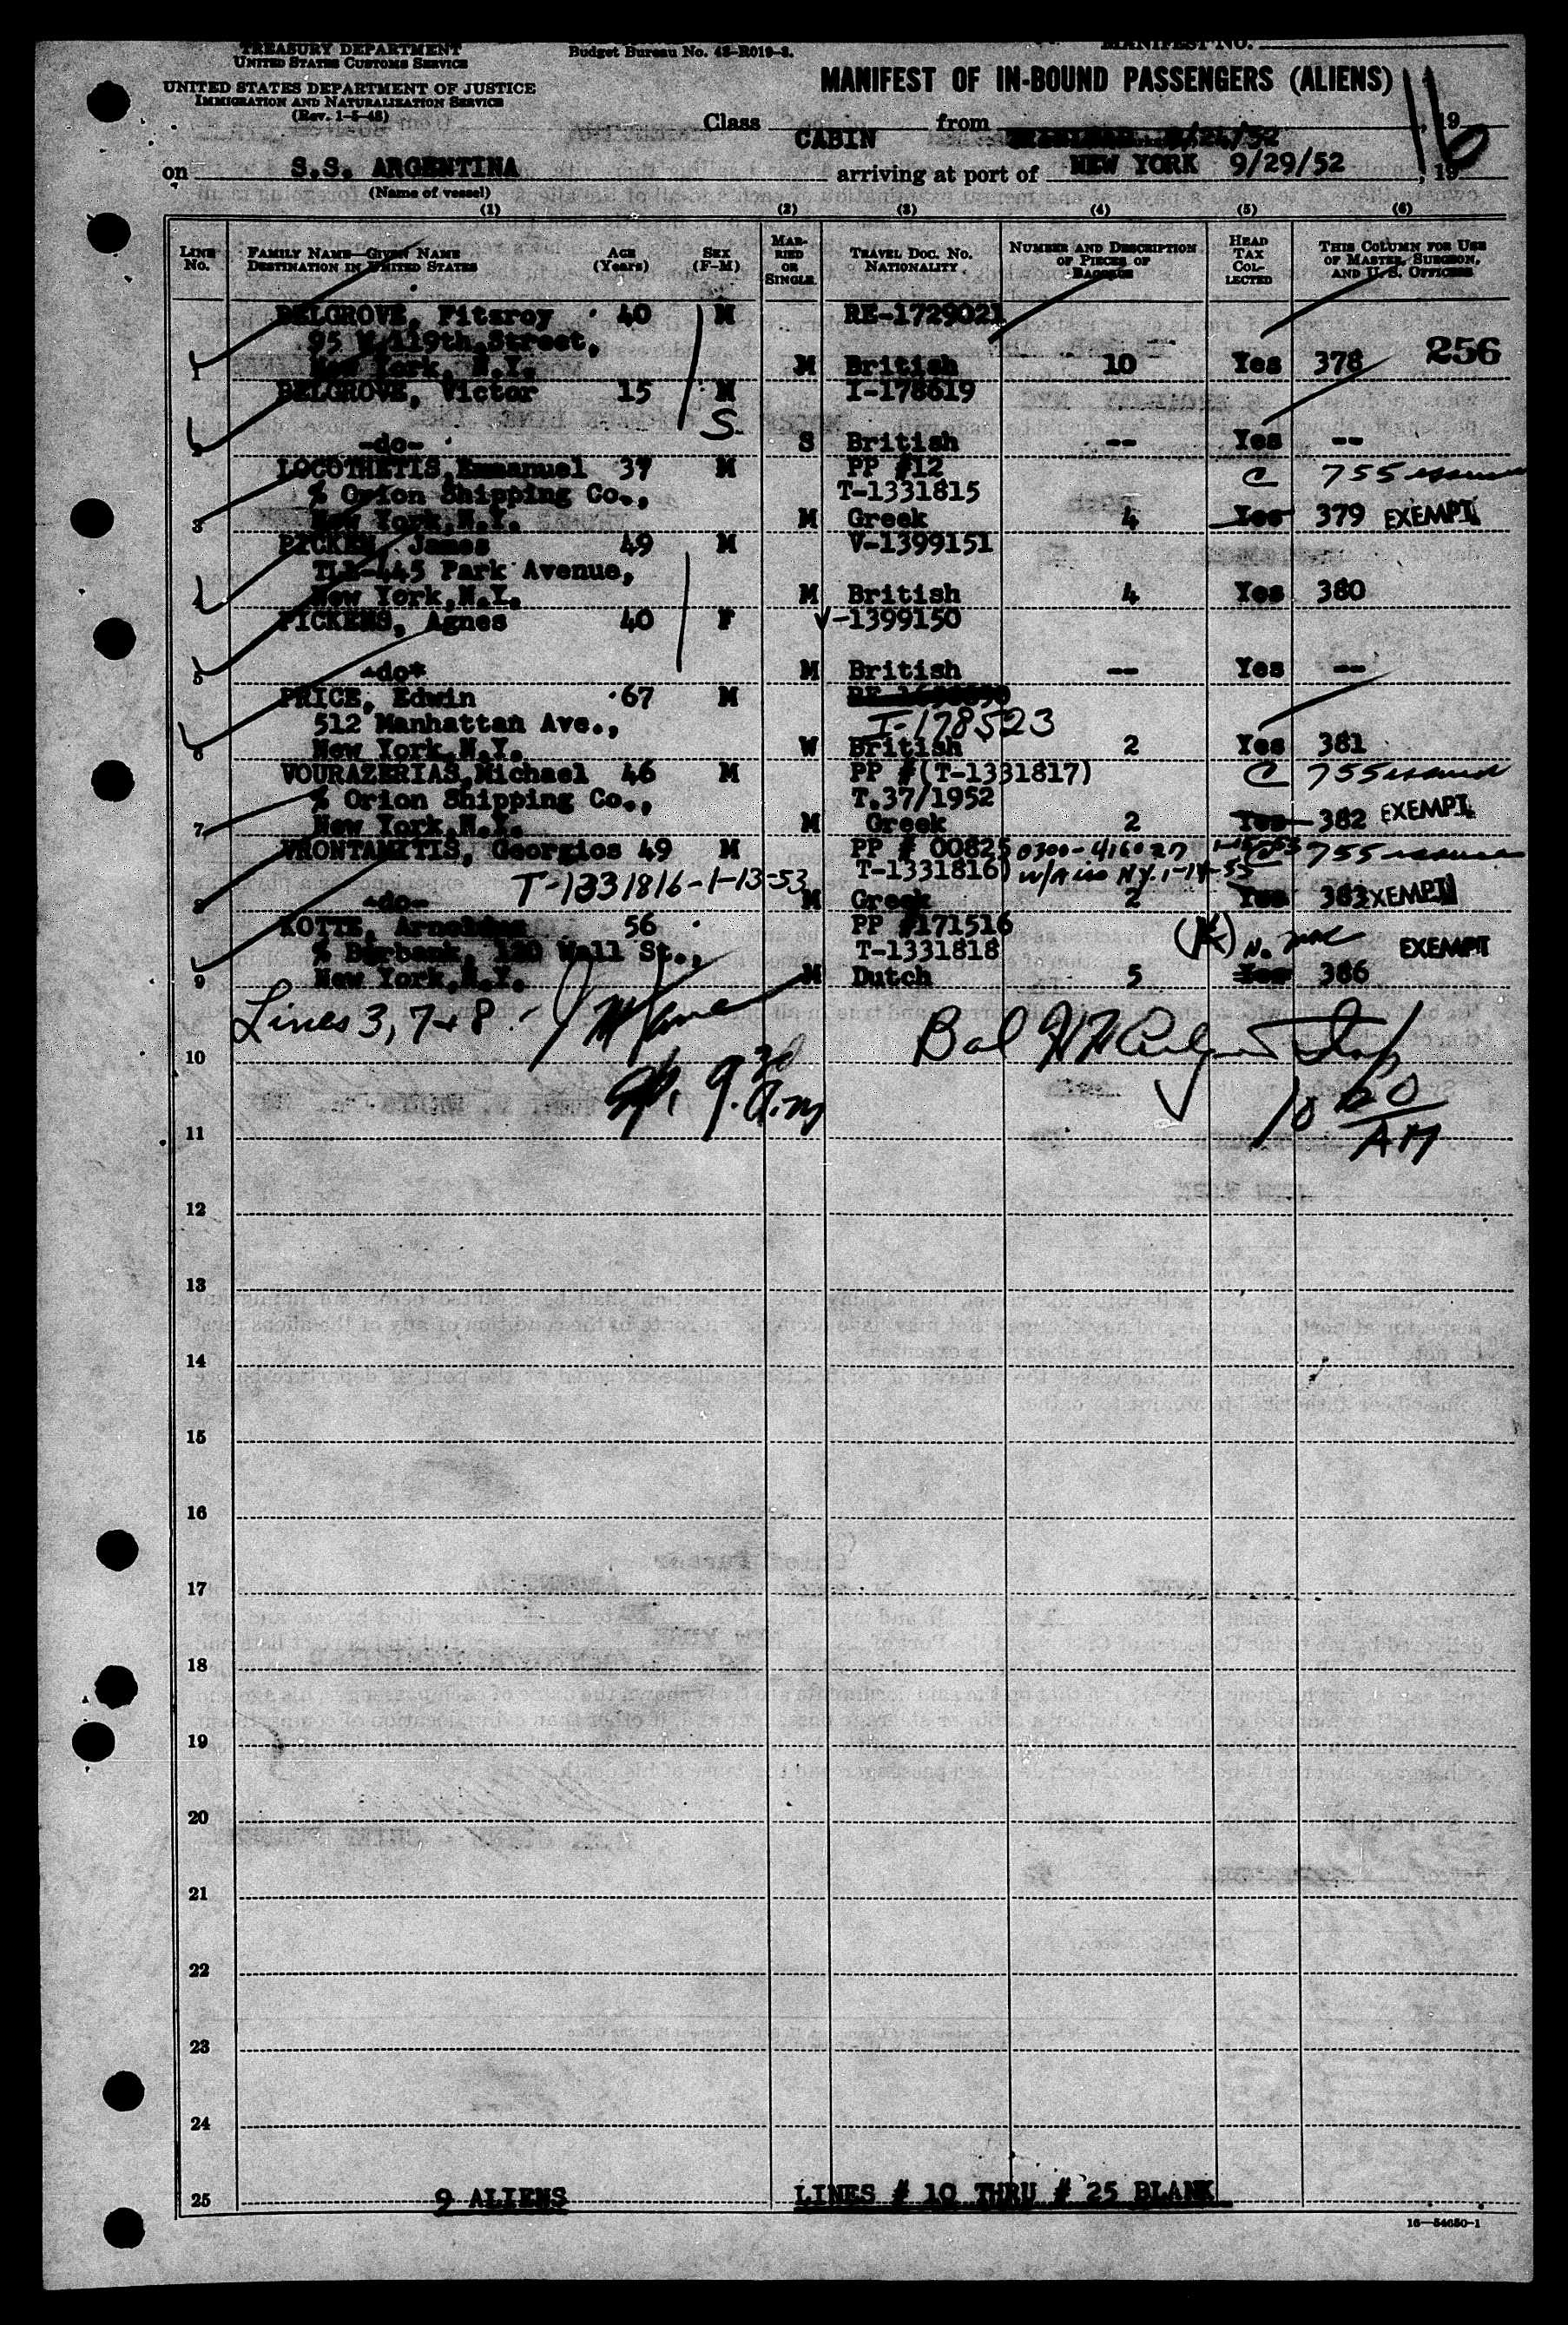 TREASURY DEPARTMENT
UNITED STATES CUSTOMS SERVICE
UNITED STATES DEPARTMENT OF JUSTICE
IMMIGRATION AND NATURALIZATION SERVICE
(Rev. 1-5-48)
Budget Bureau No. 43-R019-3.
MANIFEST NO.
MANIFEST OF IN-BOUND PASSENGERS (ALIENS)
16
Class CABIN from 9/24/52, 19
on S.S. ARGENTINA arriving at port of NEW YORK 9/29/52, 19
(Name of vessel)
(1) (2) (3) (4) (5) (6)
LINE No. FAMILY NAME—GIVEN NAME DESTINATION IN UNITED STATES AGE (Years) SEX (F-M) MARRIED OR SINGLE TRAVEL DOC. NO. NATIONALITY NUMBER AND DESCRIPTION OF PIECES OF BAGGAGE HEAD TAX COLLECTED THIS COLUMN FOR USE OF MASTER, SURGEON, AND U. S. OFFICERS
BELGROVE, Fitzroy 40 M RE-1729021
95 W.119th Street,
1 New York, N.Y. M British 10 Yes 378 256
BELGROVE, Victor 15 M I-178619
S
-do- S British -- Yes --
LOCOTHETIS, Emmanuel 37 M PP #12 C 755 issued
% Orion Shipping Co., T-1331815
3 New York,N.Y. M Greek 4 Yes 379 EXEMPT
PICKEN, James 49 M V-1399151
TLX-445 Park Avenue,
4 New York,N.Y. M British 4 Yes 380
PICKENS, Agnes 40 F V-1399150
5 -do* M British -- Yes --
PRICE, Edwin 67 M
512 Manhattan Ave., I-178523
6 New York,N.Y. W British 2 Yes 381
VOURAZERIAS,Michael 46 M PP #(T-1331817) C 755 issued
% Orion Shipping Co., T.37/1952
7 New York,N.Y. M Greek 2 Yes 382 EXEMPT
VRONTAMITIS, Georgios 49 M PP # 00825 0300-416027 C 755 issued
T-1331816-1-13-53 T-1331816)
8 -do- M Greek 2 Yes 383 EXEMPT
KOTTE, Arnoldus 56 PP #171516
% Burbank, 120 Wall St., T-1331818 EXEMPT
9 New York,N.Y. M Dutch 5 Yes 386
Lines 3, 7 & 8:-
10
9.30 a.m
Bal
10
AM
11
12
13
14
15
16
17
18
19
20
21
22
23
24
25 9 ALIENS LINES # 10 THRU # 25 BLANK
16—54650-1